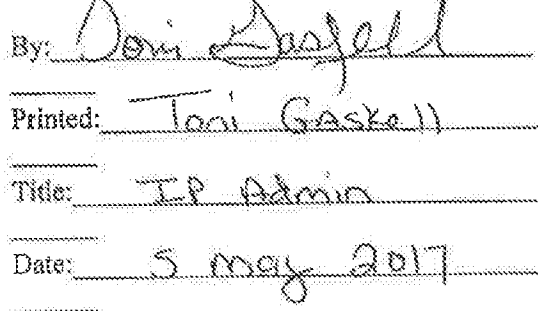 By: Toni Gaskell
Printed: Toni Gaskell
Title: IP Admin
Date: 5 May 2017